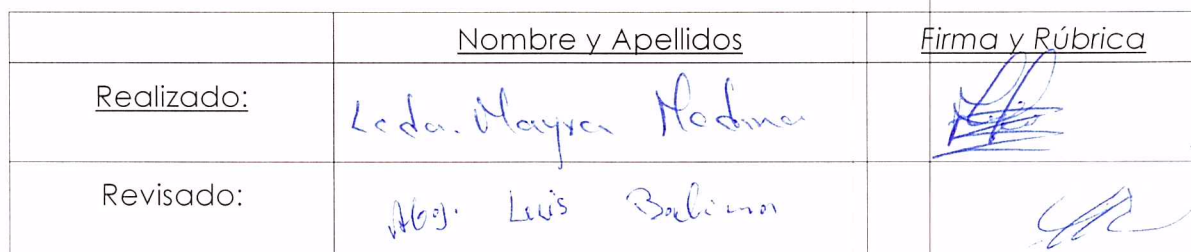 Nombre y Apellidos Firma y Rúbrica
Realizado: Lcda. Mayra Medina
Revisado: Abg. Luis